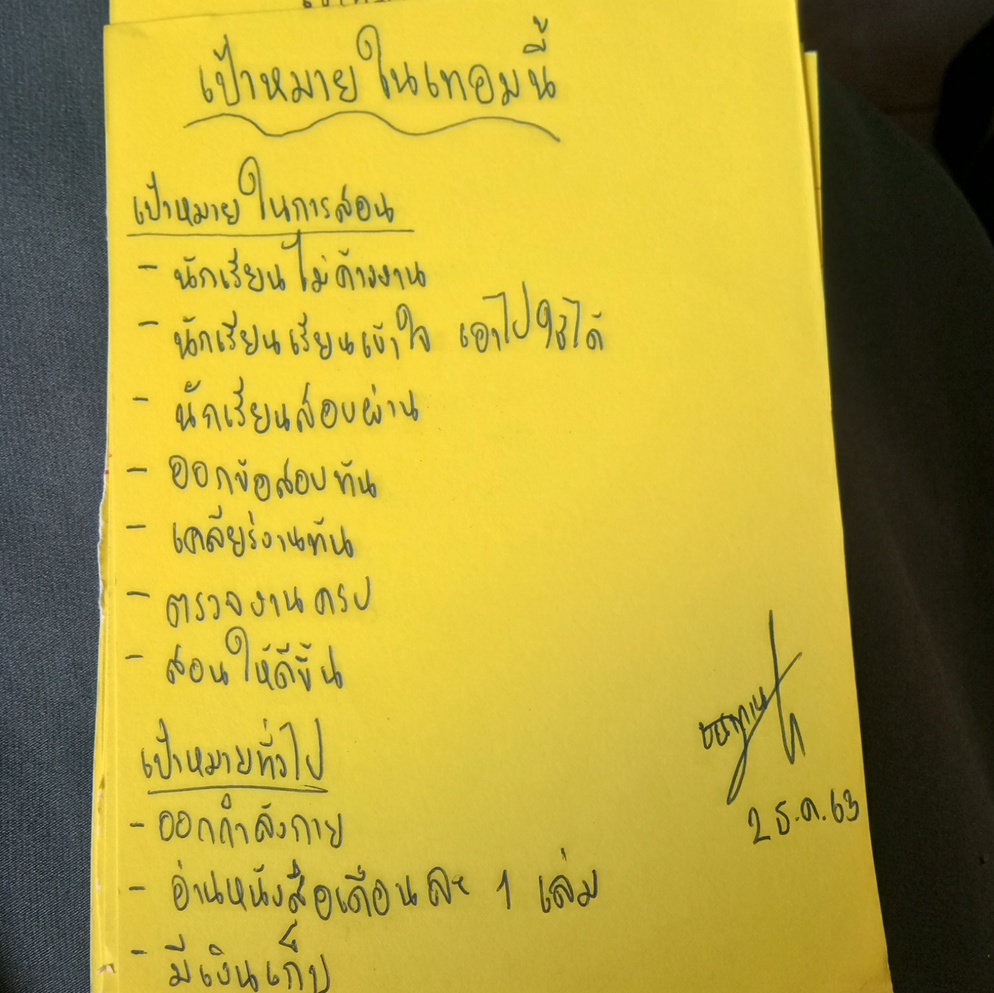 เป้าหมายในเทอมนี้
เป้าหมายในการสอน
- นักเรียนไม่ค้างงาน
- นักเรียนเรียนเข้าใจ เอาไปใช้ได้
- นักเรียนสอบผ่าน
- ออกข้อสอบทัน
- เคลียร์งานทัน
- ตรวจงานครบ
- สอนให้ดีขึ้น
เป้าหมายทั่วไป
- ออกกำลังกาย
- อ่านหนังสือเดือนละ 1 เล่ม
- มีเงินเก็บ
2 ธ.ค. 63